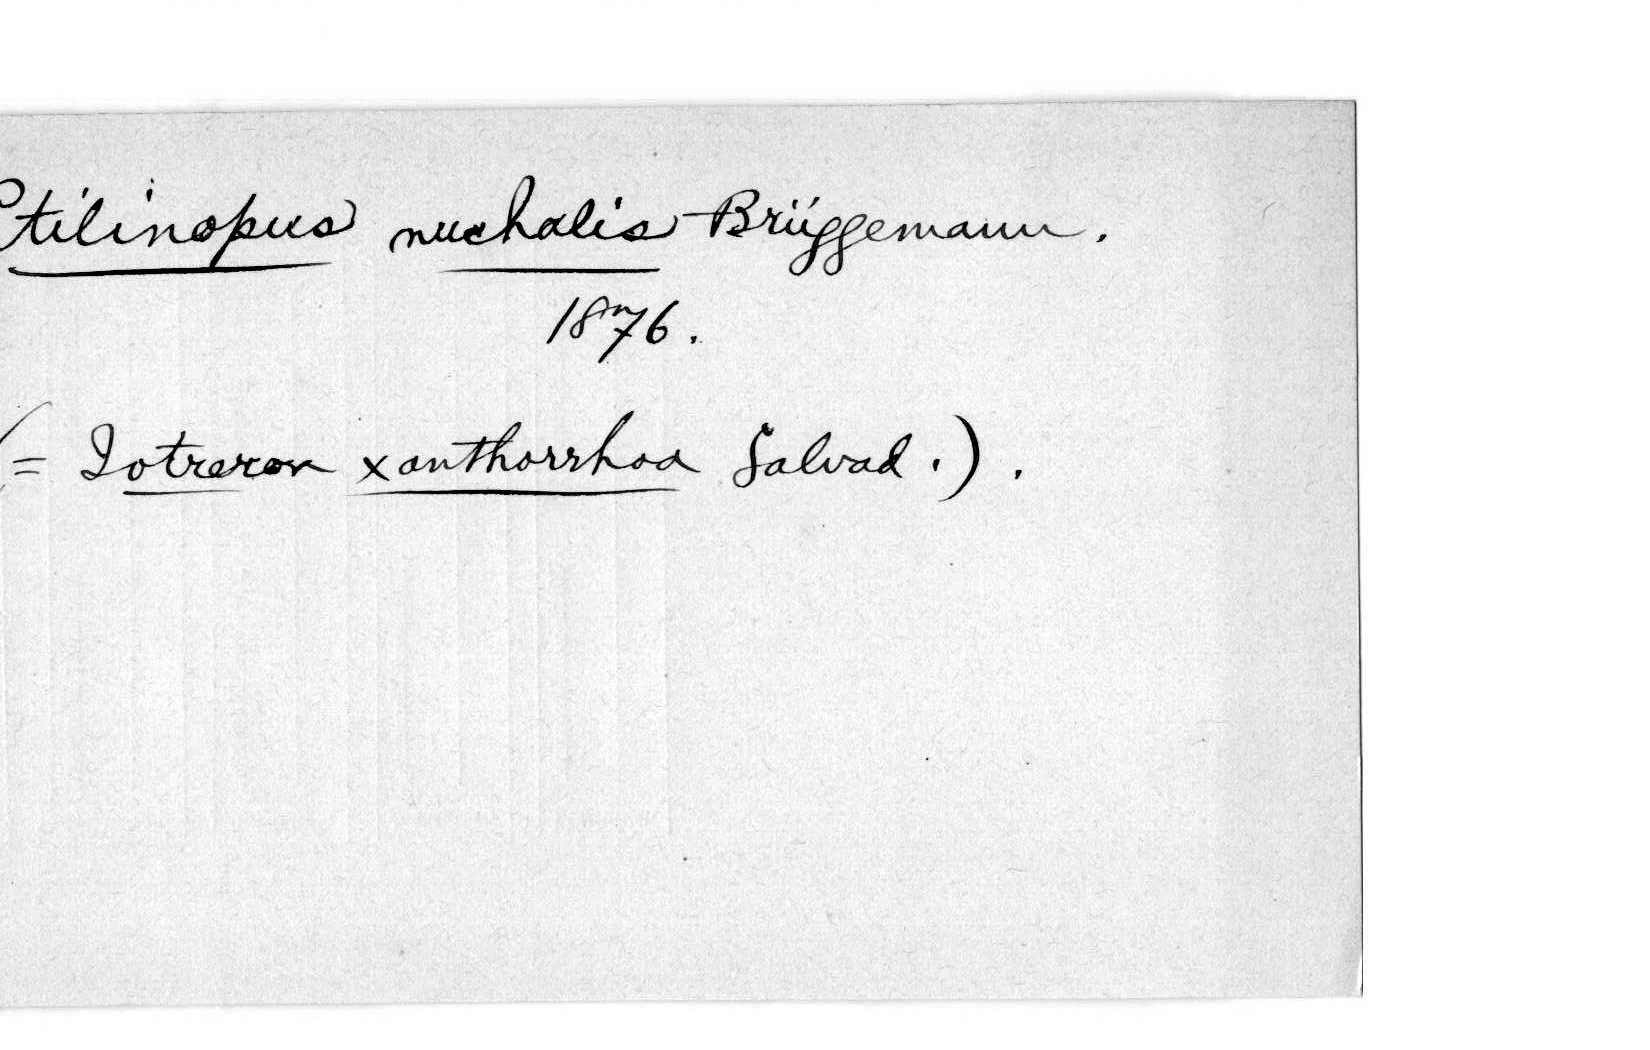 Ptilinopus nuchalis Brüggemann.
1876.
(= Iotreron xanthorrhoa Salvad.).